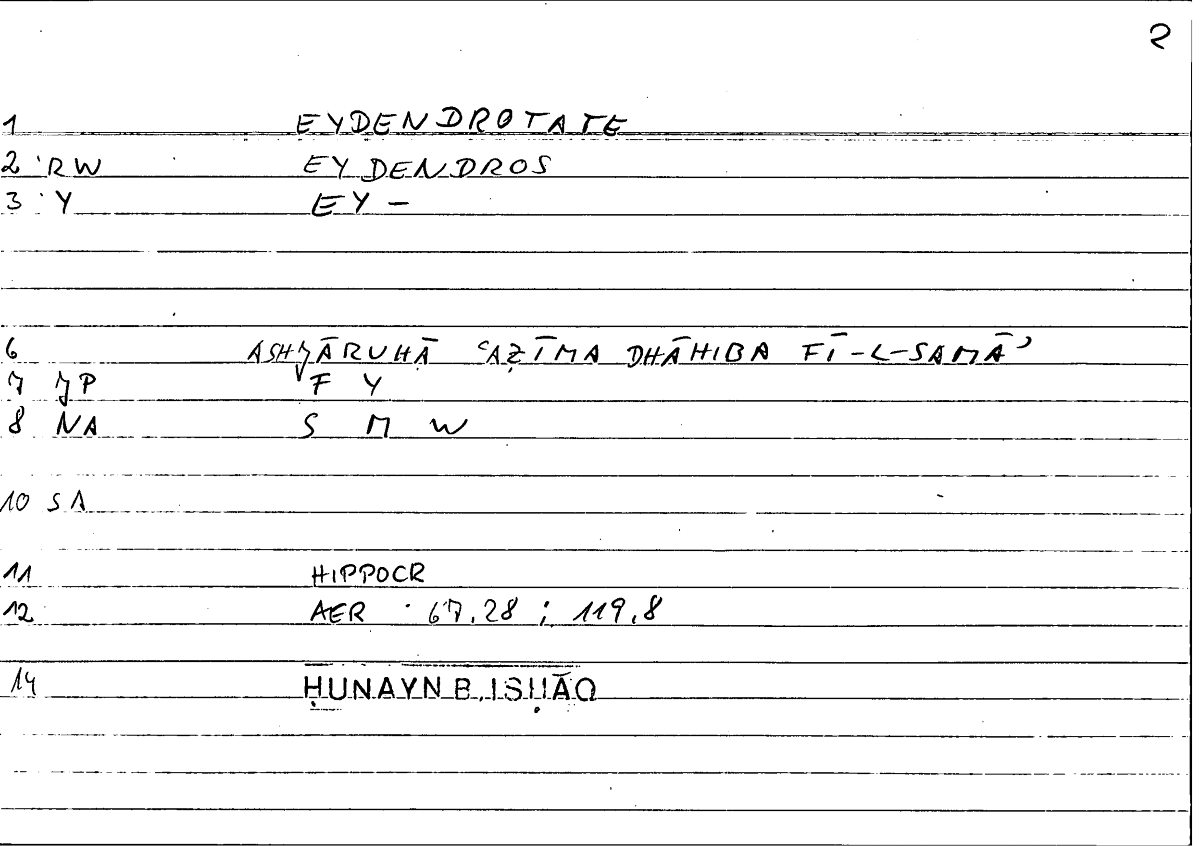 2
1 EYDENDROTATE
2 RW EYDENDROS
3 Y EY -
6 ASHJĀRUHĀ ʿAẒĪMA DHĀHIBA FĪ-L-SAMĀʾ
7 JP F Y
8 NA S M W
10 SA
11 HIPPOCR
12 AER 67.28 ; 119.8
14 ḤUNAYN B. ISḤĀQ